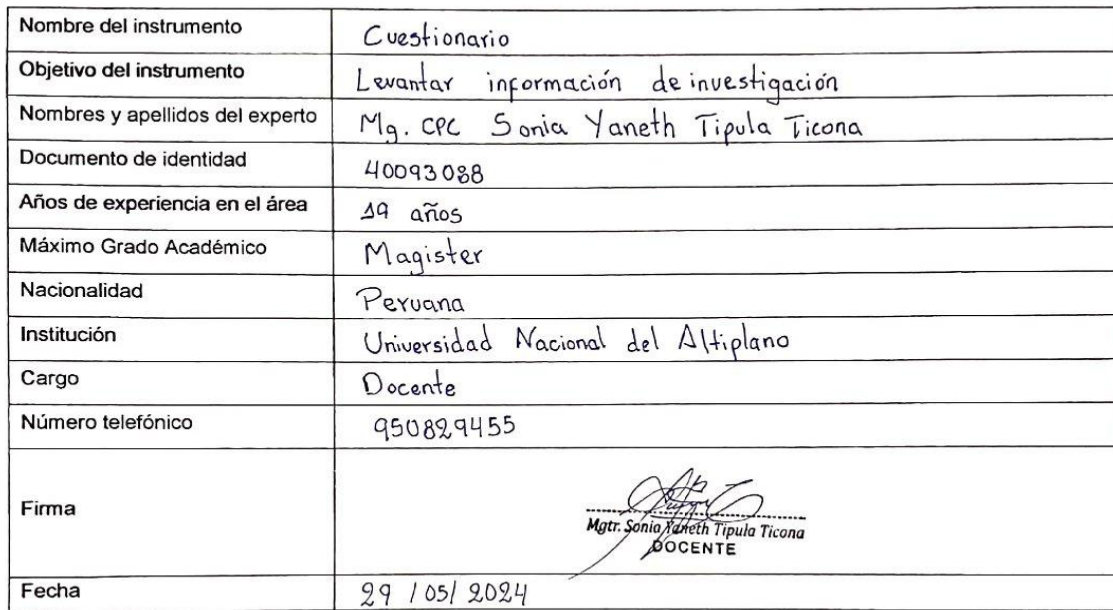 Nombre del instrumento Cuestionario
Objetivo del instrumento Levantar información de investigación
Nombres y apellidos del experto Mg. CPC Sonia Yaneth Tipula Ticona
Documento de identidad 40093088
Años de experiencia en el área 19 años
Máximo Grado Académico Magister
Nacionalidad Peruana
Institución Universidad Nacional del Altiplano
Cargo Docente
Número telefónico 950829455
Firma
Mgtr. Sonia Yaneth Tipula Ticona
DOCENTE
Fecha 29 / 05/ 2024